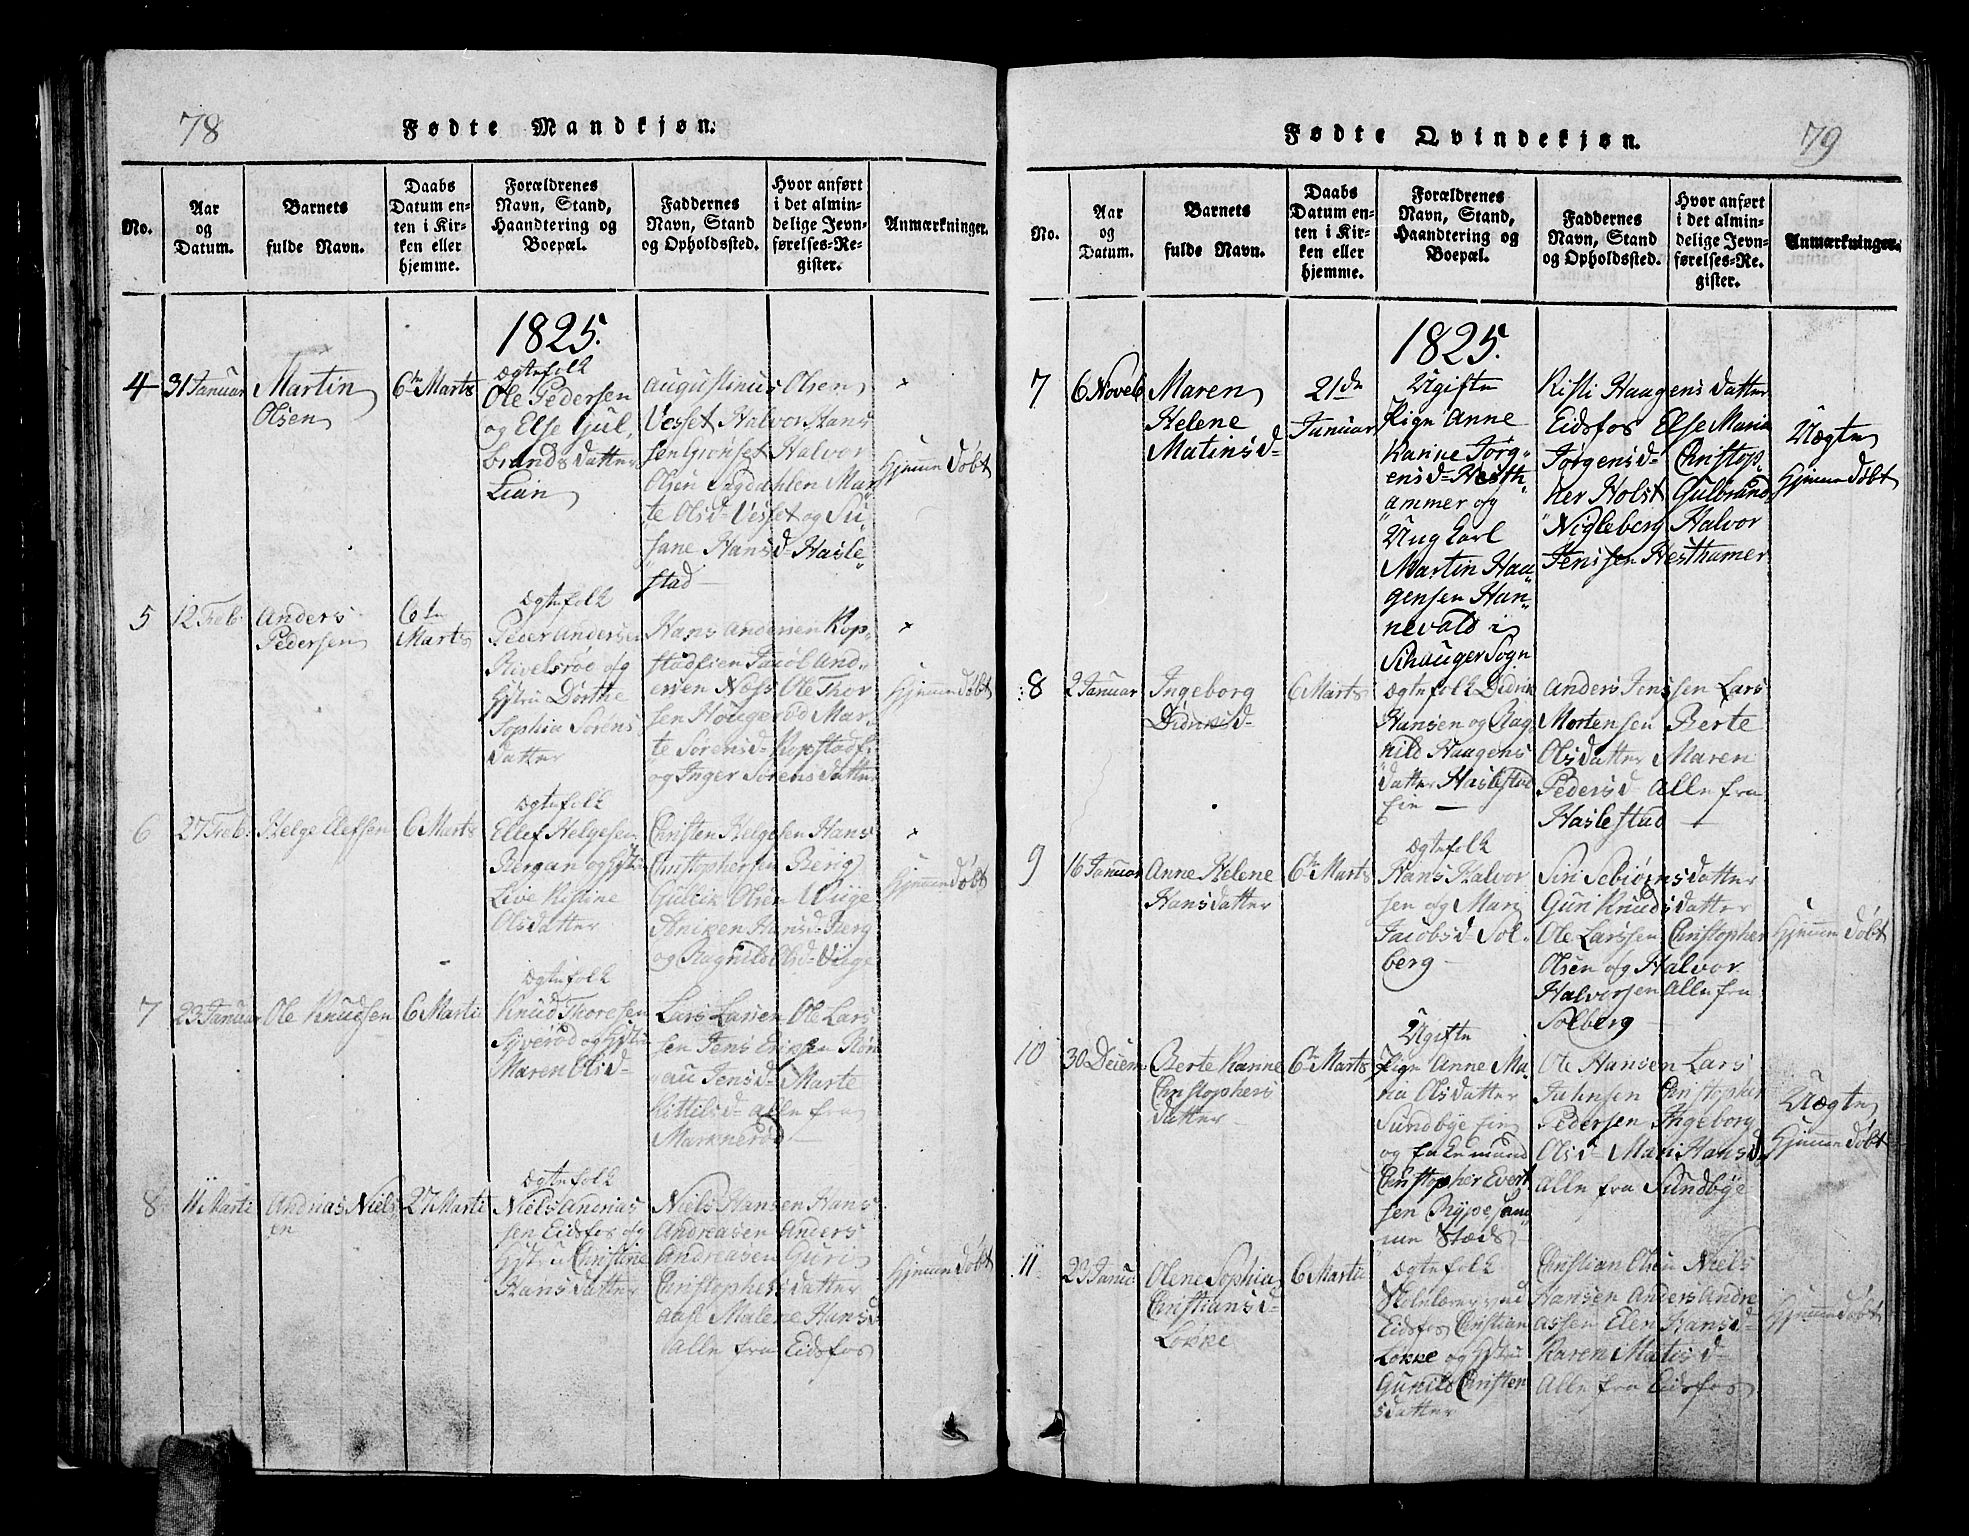 78
Fødte Mandkjøn.
No.
Aar
og
Datum.
Barnets
fulde Navn.
Daabs
Datum en-
ten i Kir-
ken eller
hjemme.
Forældrenes
Navn, Stand,
Haandtering og
Boepæl.
Faddernes
Navn, Stand
og Opholdssted.
Hvor anført
i det almin-
delige Jevn-
førelses-Re-
gister.
Anmærkninger.
1825.
4
31 Januar
Martin
Olsen
6te Marts
Ægtefolk
Ole Pedersen
og Else Gul,
brands datter
Lian
Augustinus Olsen
Vesset Halvor Hans
sen Grønset Halvor
Olsen Sagdahlen Mar
te Olsd- Vesset og Su
sane Hansd- Hasle
stad
Hjemme Døbt
5
12 Feb.
Anders
Pedersen
6te
Marts
Ægtefolk
Peder Andersen
Rivelsrød og
Hstru Dorthe
Sophia Sørens
datter
Hans Andersen Kop
stadeien Jacob And,
ersen Næss Ole Thor
sen Hougerød Mar
te Sørensd- Kopstad
og Inger Sørens datter
Hjemme Døbt
6
27 Feb.
Helge Elefsen
6 Marts
Ægtefolk
Ellef Helgesen
Bergan og Hst
Live Kistine
Olsdatter
Christen Helgesen Hans
Christophersen Berig
Gullik Olsen Viige
Anniken Hansd- Berg
og Ragnild Olsd- Viige
Hjemme Døbt
7
23 Januar
Ole Knudsen
6 Marti
Ægtefolk
Knud Thoresen
Syverød og Hst
Maren Olsd-
Lars Larsen Ole Lars
sen Jens Eriksen Røn
nau Jensd- Marte
Kittilsd- alle fra
Marknerød
8
11 Marti
Andrias Niels
en
27 Marti
Ægtefolk
Niels Andrias
sen Eidsfos og
Hstru Christine
Hans datter
Niels Hansen Hans
Andreasen Anders
Andreasen Guri
Christophers datter
Aase Malene Hansd
Alle fra Eidsfos
Hjemme Døbt
79
Fødte Qvindekjøn.
No.
Aar
og
Datum.
Barnets
fulde Navn.
Daabs
Datum en-
ten i Kir-
ken eller
hjemme.
Forældrenes
Navn, Stand,
Haandtering og
Boepæl.
Faddernes
Navn, Stand
og Opholdssted.
Hvor anført
i det almin-
delige Jevn-
førelses-Re-
gister.
Anmærkninger.
1825.
7
6 Noveb
Maren
Helene
Matinsd-
21de
Januar
Ugifte
Pige Anne
Karine Jørg
ensd- Hesth
ammer og
Ung Karl
Martin Haa
gensen Han
nevold i
Schauger Sogn
Kisti Haagens datter
Eidsfos Else Maria
Jørgensd- Christop
her Holst Gulbrand
Nigleberg Halvor
Jenssen Hesthamer
Uægte
Hjemme Døbt
8
2 Januar
Ingeborg
Didriksd-
6 Marts
Ægtefolk Didrik
Hansen og Rag
nild Haagens
datter Haslestad
Eie
Anders Jenssen Lars
Mortensen Berte
Olsdatter Maren
Pedersd Alle fra
Haslestad
9
16 Januar
Anne Helene
Hansdatter
6te Marts
Ægtefolk
Hans Halvor
sen og Mari
Jacobsd- Sol
berg
Siri Sebiørns datter
Guri Knuds datter
Ole Larssen Christopher
Olsen og Halvor
Halvorsen Alle fra
Solberg
Hjemme Døbt
10
30 Decem
Berte Karine
Christophers
datter
6te Marts
Ugifte
Pige Anne Ma
ria Olsdatter
Sundbye Eie
og Enkemand
Christopher Evert
sen Rype sam
me Stæds
Ole Hansen Lars
Juhnsen Christopher
Pedersen Ingeborg
Olsd- Mari Hansd
Alle fra Sundbye
Uægte
Hjemme Døbt
11
23 Janu
Olene Sophia
Christiansd-
Lokke
6 Marti
Ægtefolk
Skolelærer ved
Eidsfos Christian
Lokke og Hstru
Gunild Christen
sdatter
Christian Olsen Niels
Hansen Anders Andre
assen Elen Hansd-
Karen Matisd-
Alle fra Eidsfos
Hjemme Døbt